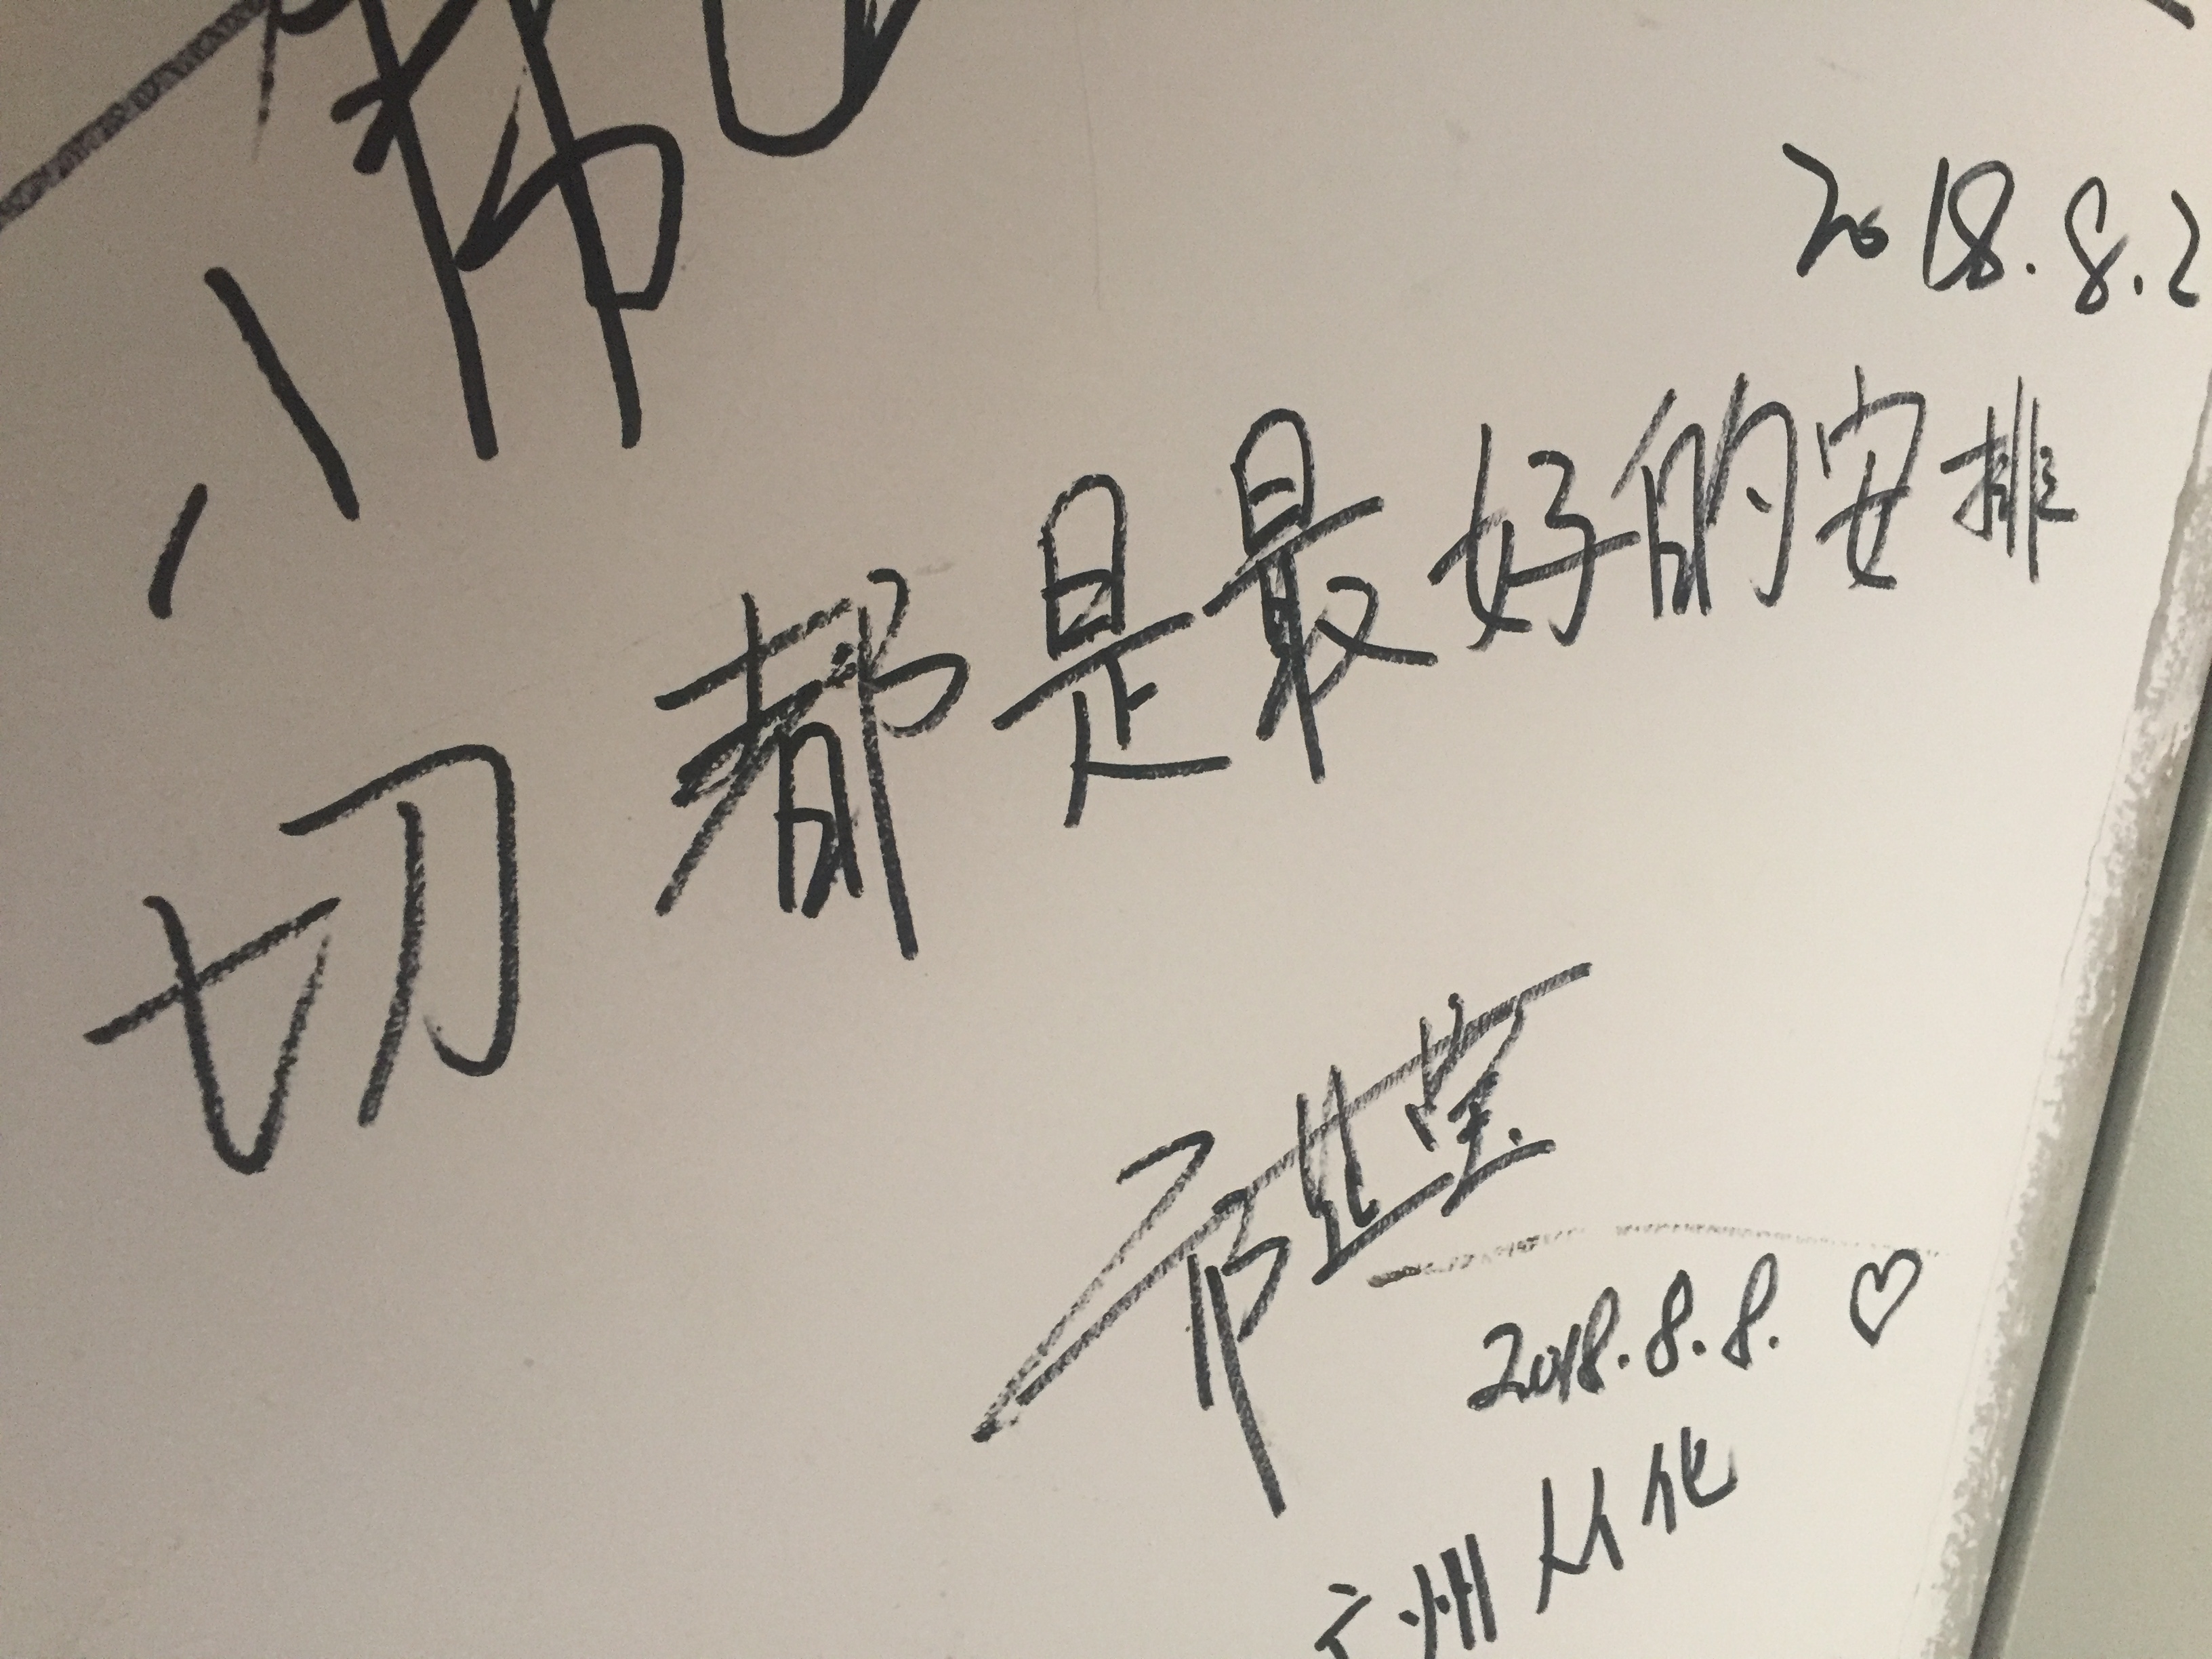 2018.8.2
切都是最好的安排
2018.8.8. ♡
广州从化